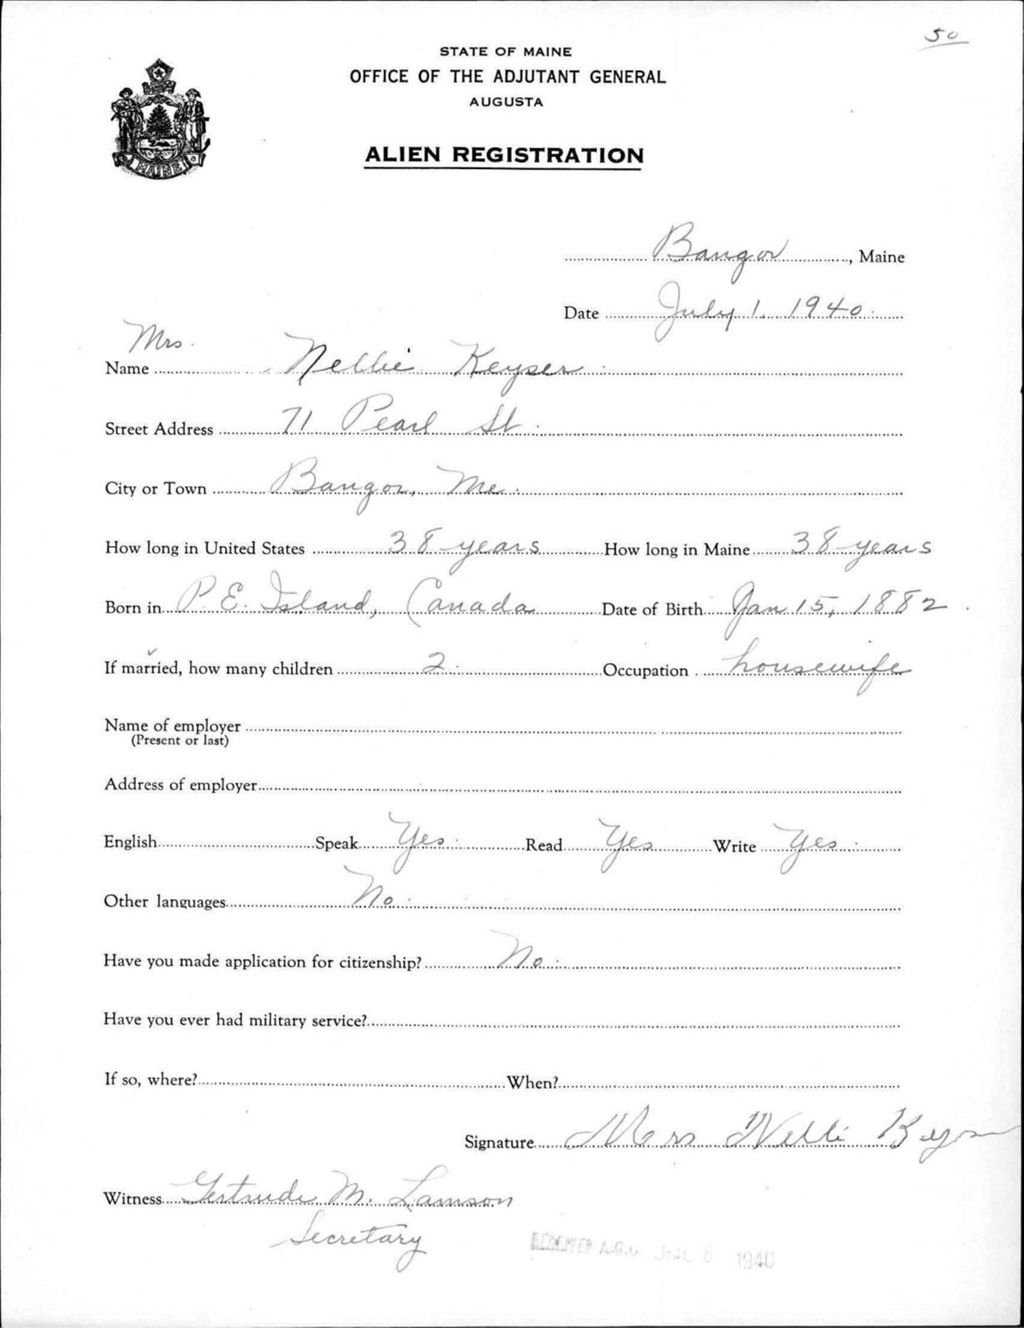 50
STATE OF MAINE
OFFICE OF THE ADJUTANT GENERAL
AUGUSTA
MAINE
ALIEN REGISTRATION
Bangor, Maine
Date July 1, 1940.
Mrs.
Name Nellie Keyser.
Street Address 71 Pearl St.
City or Town Bangor, Me.
How long in United States 38 years How long in Maine 38 years
Born in P. E. Island, Canada Date of Birth Jan 15, 1882.
If married, how many children 2. Occupation housewife
Name of employer
(Present or last)
Address of employer
English Speak Yes. Read Yes Write Yes.
Other languages No.
Have you made application for citizenship? No.
Have you ever had military service?
If so, where? When?
Signature Mrs Nelli Keyser
Witness Gertrude M. Lamson
Secretary
RECEIVED A.G.O. JUL 8 1940